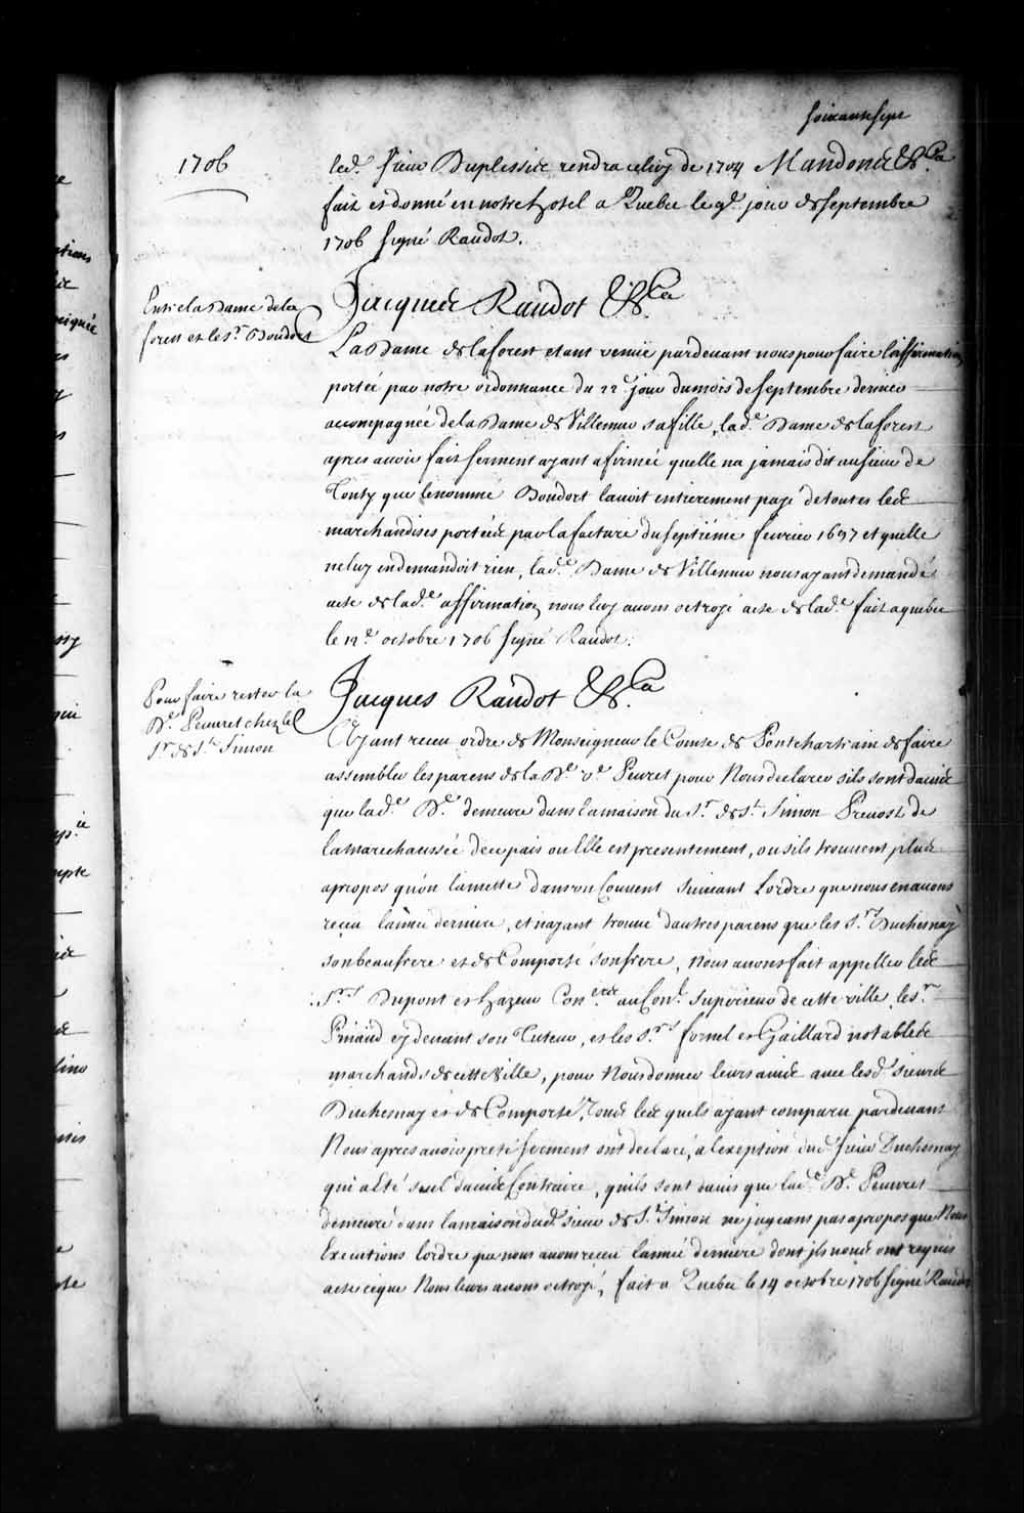 soixante sept
1706
led. sieur Duplessis rendra celuy de 1704 Mandons &a.
fait et donné en notre hostel a Quebec le 9e. jour de septembre
1706 signé Raudot.
Entre la Dame de la
forest et le Sr. Boudort
Jacques Raudot &a.
La Dame de laforest etant venüe pardevant nous pour faire l'affirmation
portée par notre ordonnance du 22e. jour du mois de septembre dernier
accompagnée de la Dame de Villemur sa fille, lade. Dame de laforest
apres avoir fait serment ayant afirmée quelle na jamais dit au sieur de
Tonty que le nommé Boudort lavoit entierement payé de toutes les
marchandises portées par la facture du septiéme fevrier 1697 et quelle
ne luy en demandoit rien, lade. Dame de Villemur nous ayant demandé
acte de lade. affirmation nous luy avons octroyé acte de lade. fait a quebec
le 12e. octobre 1706 signé Raudot.
Pour faire rester la
De. Peuvret chez le
Sr. de St. Simon
Jacques Raudot &a.
Ayant receu ordre de Monseigneur le Comte de Pontchartrain de faire
assembler les parens de la De. ve. Peuvret pour Nous declarer sils sont davis
que lade. De. demeure dans la maison du Sr. de St. Simon Prevost de
la marechaussée de ce pais ou Elle est presentement, ou sils trouvent plus
apropos qu'on la mette dans un Couvent suivant Lordre que nous en avons
receu lannée derniere, et nayant trouvé dautres parens que les Srs. Duchesnay
son beaufrere et de Comporté son frere, Nous avons fait appeller les
Srs. Dupont et hazeur Coners. au Conl. superieur de cette ville, le Sr.
Pinaud cy devant son Tuteur, et les Srs. fornel et Gaillard notables
marchands de cette ville, pour Nous donner leurs avis avec lesd. sieurs
Duchesnay et de Comporté, Tous lesquels ayant comparu pardevant
Nous apres avoir preté serment ont declaré, a lexeption dud. sieur Duchesnay
qui a eté seul davis Contraire, quils sont davis que lade. De. Peuvret
demeure dans la maison dud. sieur de St. Simon ne jugeans pas apropos que Nous
Executions lordre que nous avons receu lannée derniere dont ils nous ont requis
acte ce que Nous leurs avons octroyé, fait a Quebec le 14 octobre 1706 signé Raudot